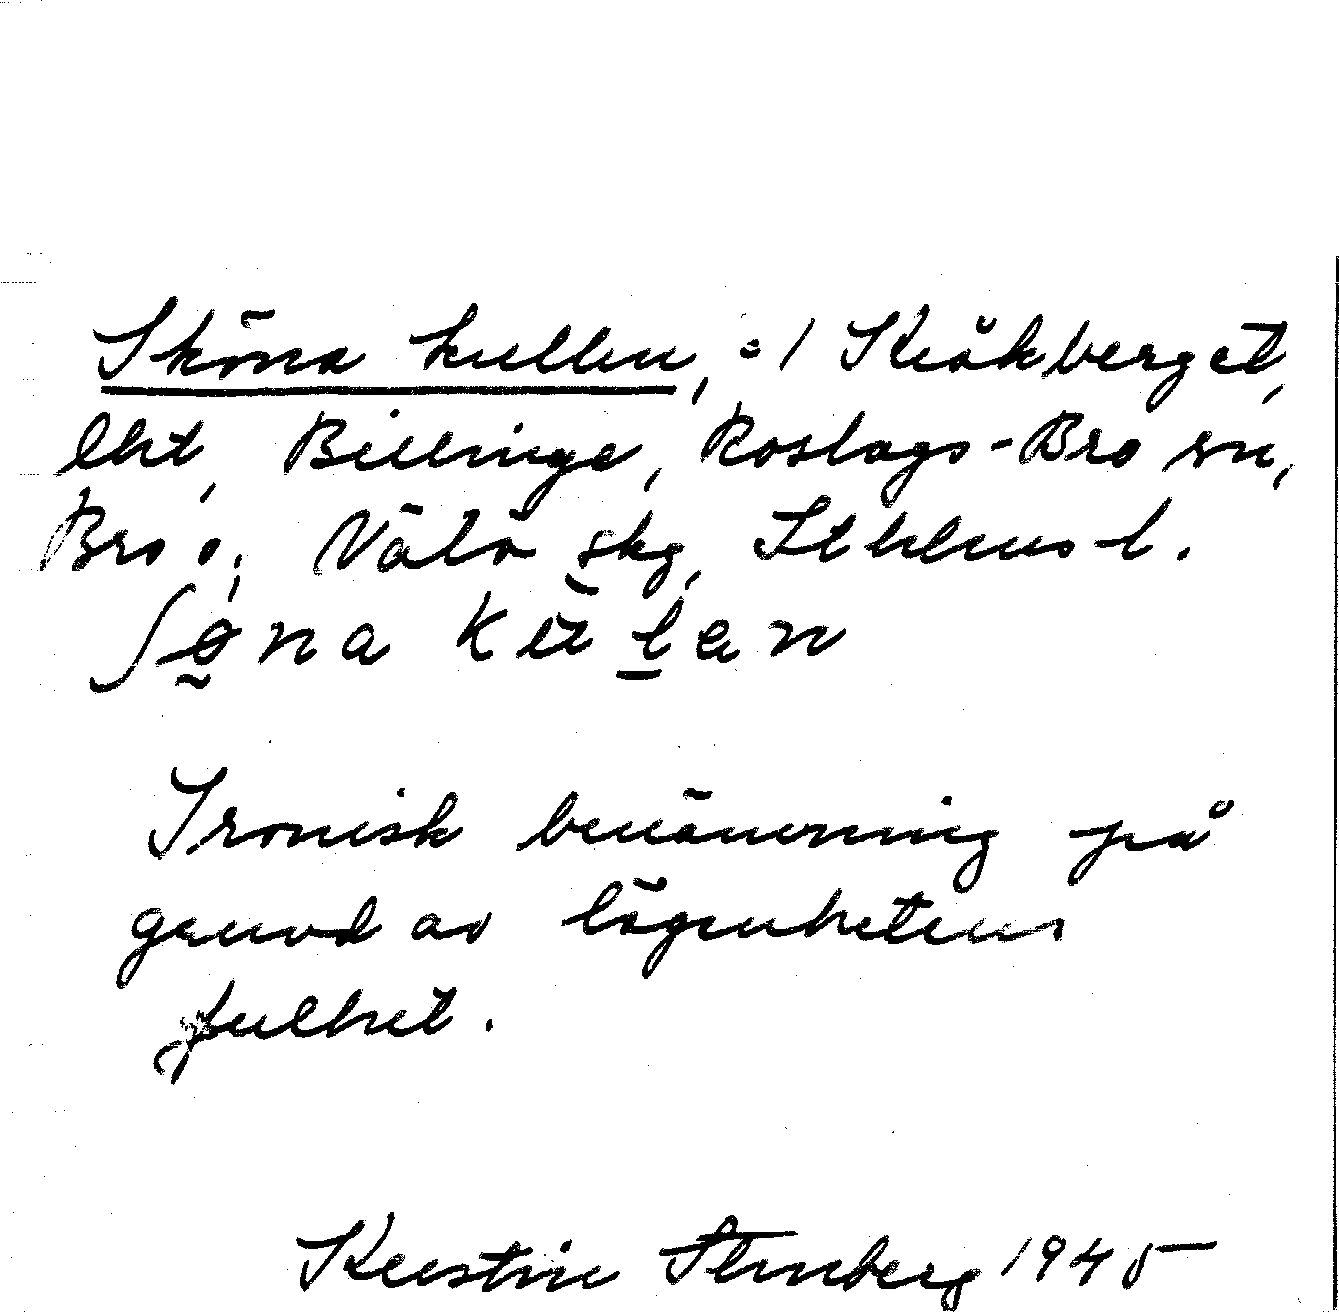 Sköna kullen, =/ Kråkberget,
lht, Billinge, Roslags-Bro sn,
Bro o. Vätö skg, Sthlms l.
Ironisk benämning på
grund av lägenhetens
fulhet.
Kerstin Stenberg 1945